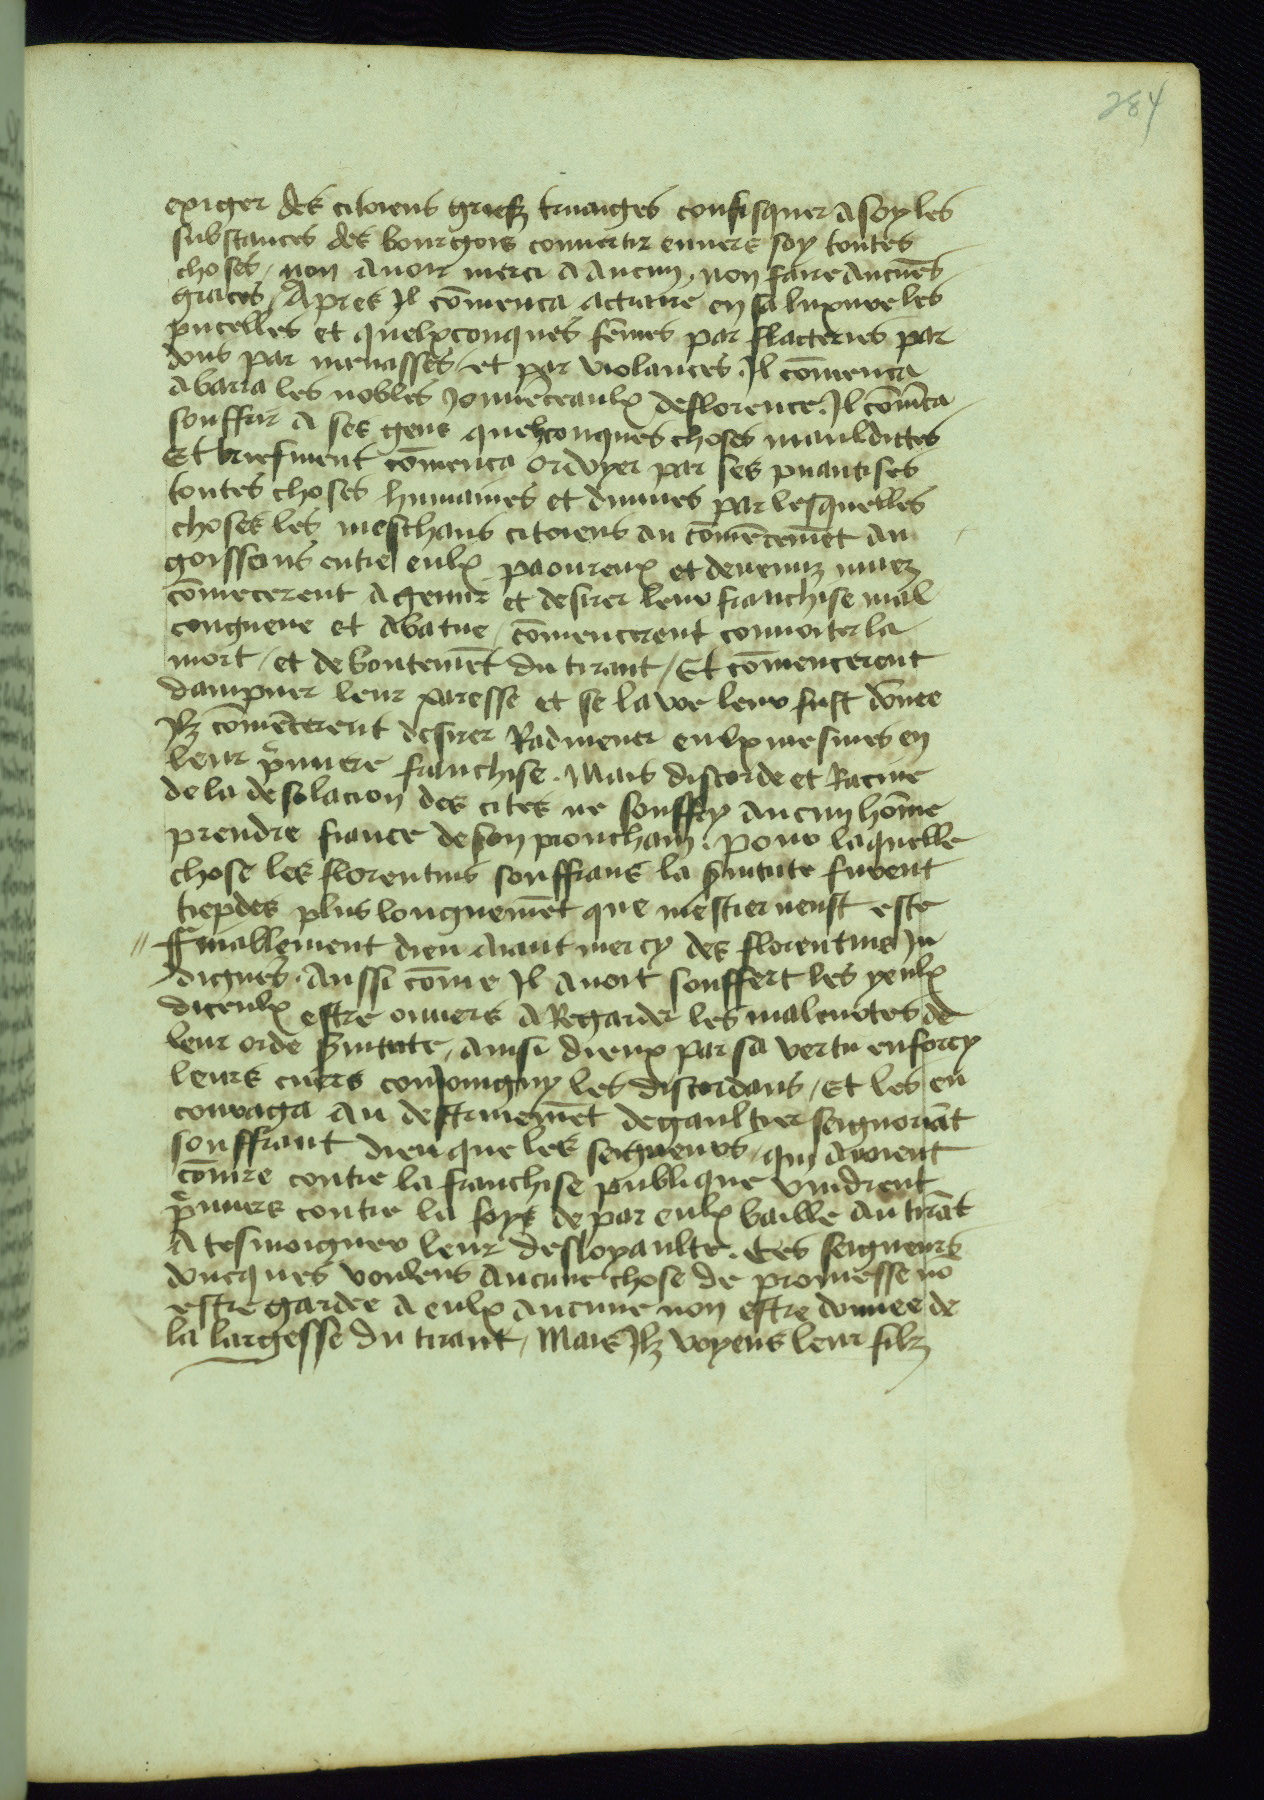 284
exiger des citoiens griefz truaiges confisquer a soy les
substances des bourgois convertir envers soy toutes
choses, non avoir merci a aucun, non faire aucu͂es
graces, Apres Il co͂menca actraire en sa luxure les
pucelles et quelxconques fe͂mes par flacteries par
dons par menasses, et par violances. Il co͂menca
a baria les nobles Jouve͂ceaulx de florence. Il co͂me͂ca
souffrir a ses gens quelzconques choses mauldittes
Et briefment co͂menca ordoyer par ses puantises
toutes choses humaines et divines par lesquelles
choses les meschans citoiens au co͂me͂ceme͂t an
goisseus entre eulx paoureux et devenuz muez
co͂mecerent a gemir et desirer leur franchise mal
congneue et abatue, co͂mencerent convoiter la
mort, et debouteme͂t du tirant, Et co͂mencerent
dampner leur paresse et se la voe leur fust do͂nee
Ilz co͂me͂cerent desirer Radmener eulx mesmes en
leur p͛miere franchise. Mais discorde et Racine
de la desolacion des cites ne souffry aucun ho͂me
prendre fiance de son prouchain. Pour laquelle
chose les florentins souffrans la s͛vitute furent
tiepdes plus longueme͂t que mestier neust este
// Ffinallement dieu aiant mercy des florentins In
dignes. Aussi co͂me Il avoit souffert les yeulx
diceulx estre ouvers a Regarder les malenotes de
leur orde s͛vitute, ainsi dieux par sa vertu enforcy
leurs cuers conJoingny les discordans, Et les en
couraga au destruieme͂t de gaultier seignoria͂t
souffrant dieu que les seigneurs, qui avoient
co͂mire contre la franchise publique vindrent
p͛miers contre la foys de par eulx baille au tira͂t
A tesmoigner leur desloyaulte. Ces seigneurs
ducques voulens aucune chose de promesse no͂
estre gardee a eulx aucune non estre donnee de
la largesse du tirant, Mais Ilz voyens leur filz